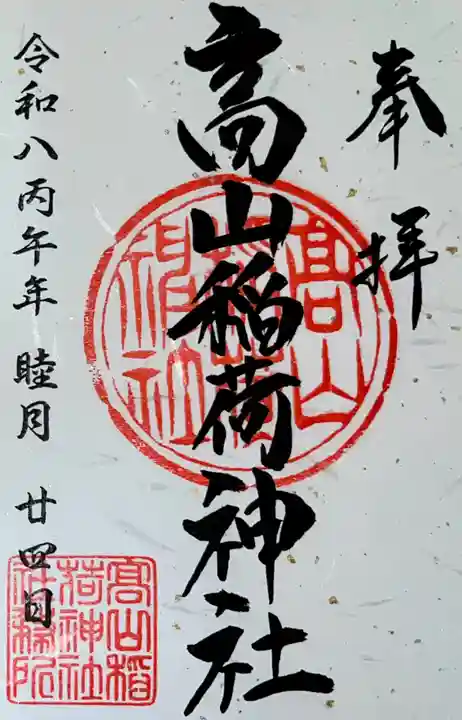 奉拝
高山稲荷神社
令和八丙午年 睦月 廿四日
高山稲荷神社
高山稲荷神社社務所